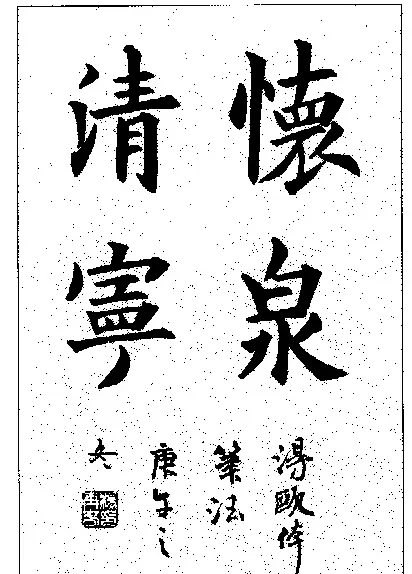 懷泉
清寧
得歐体
筆法
庚午之
冬